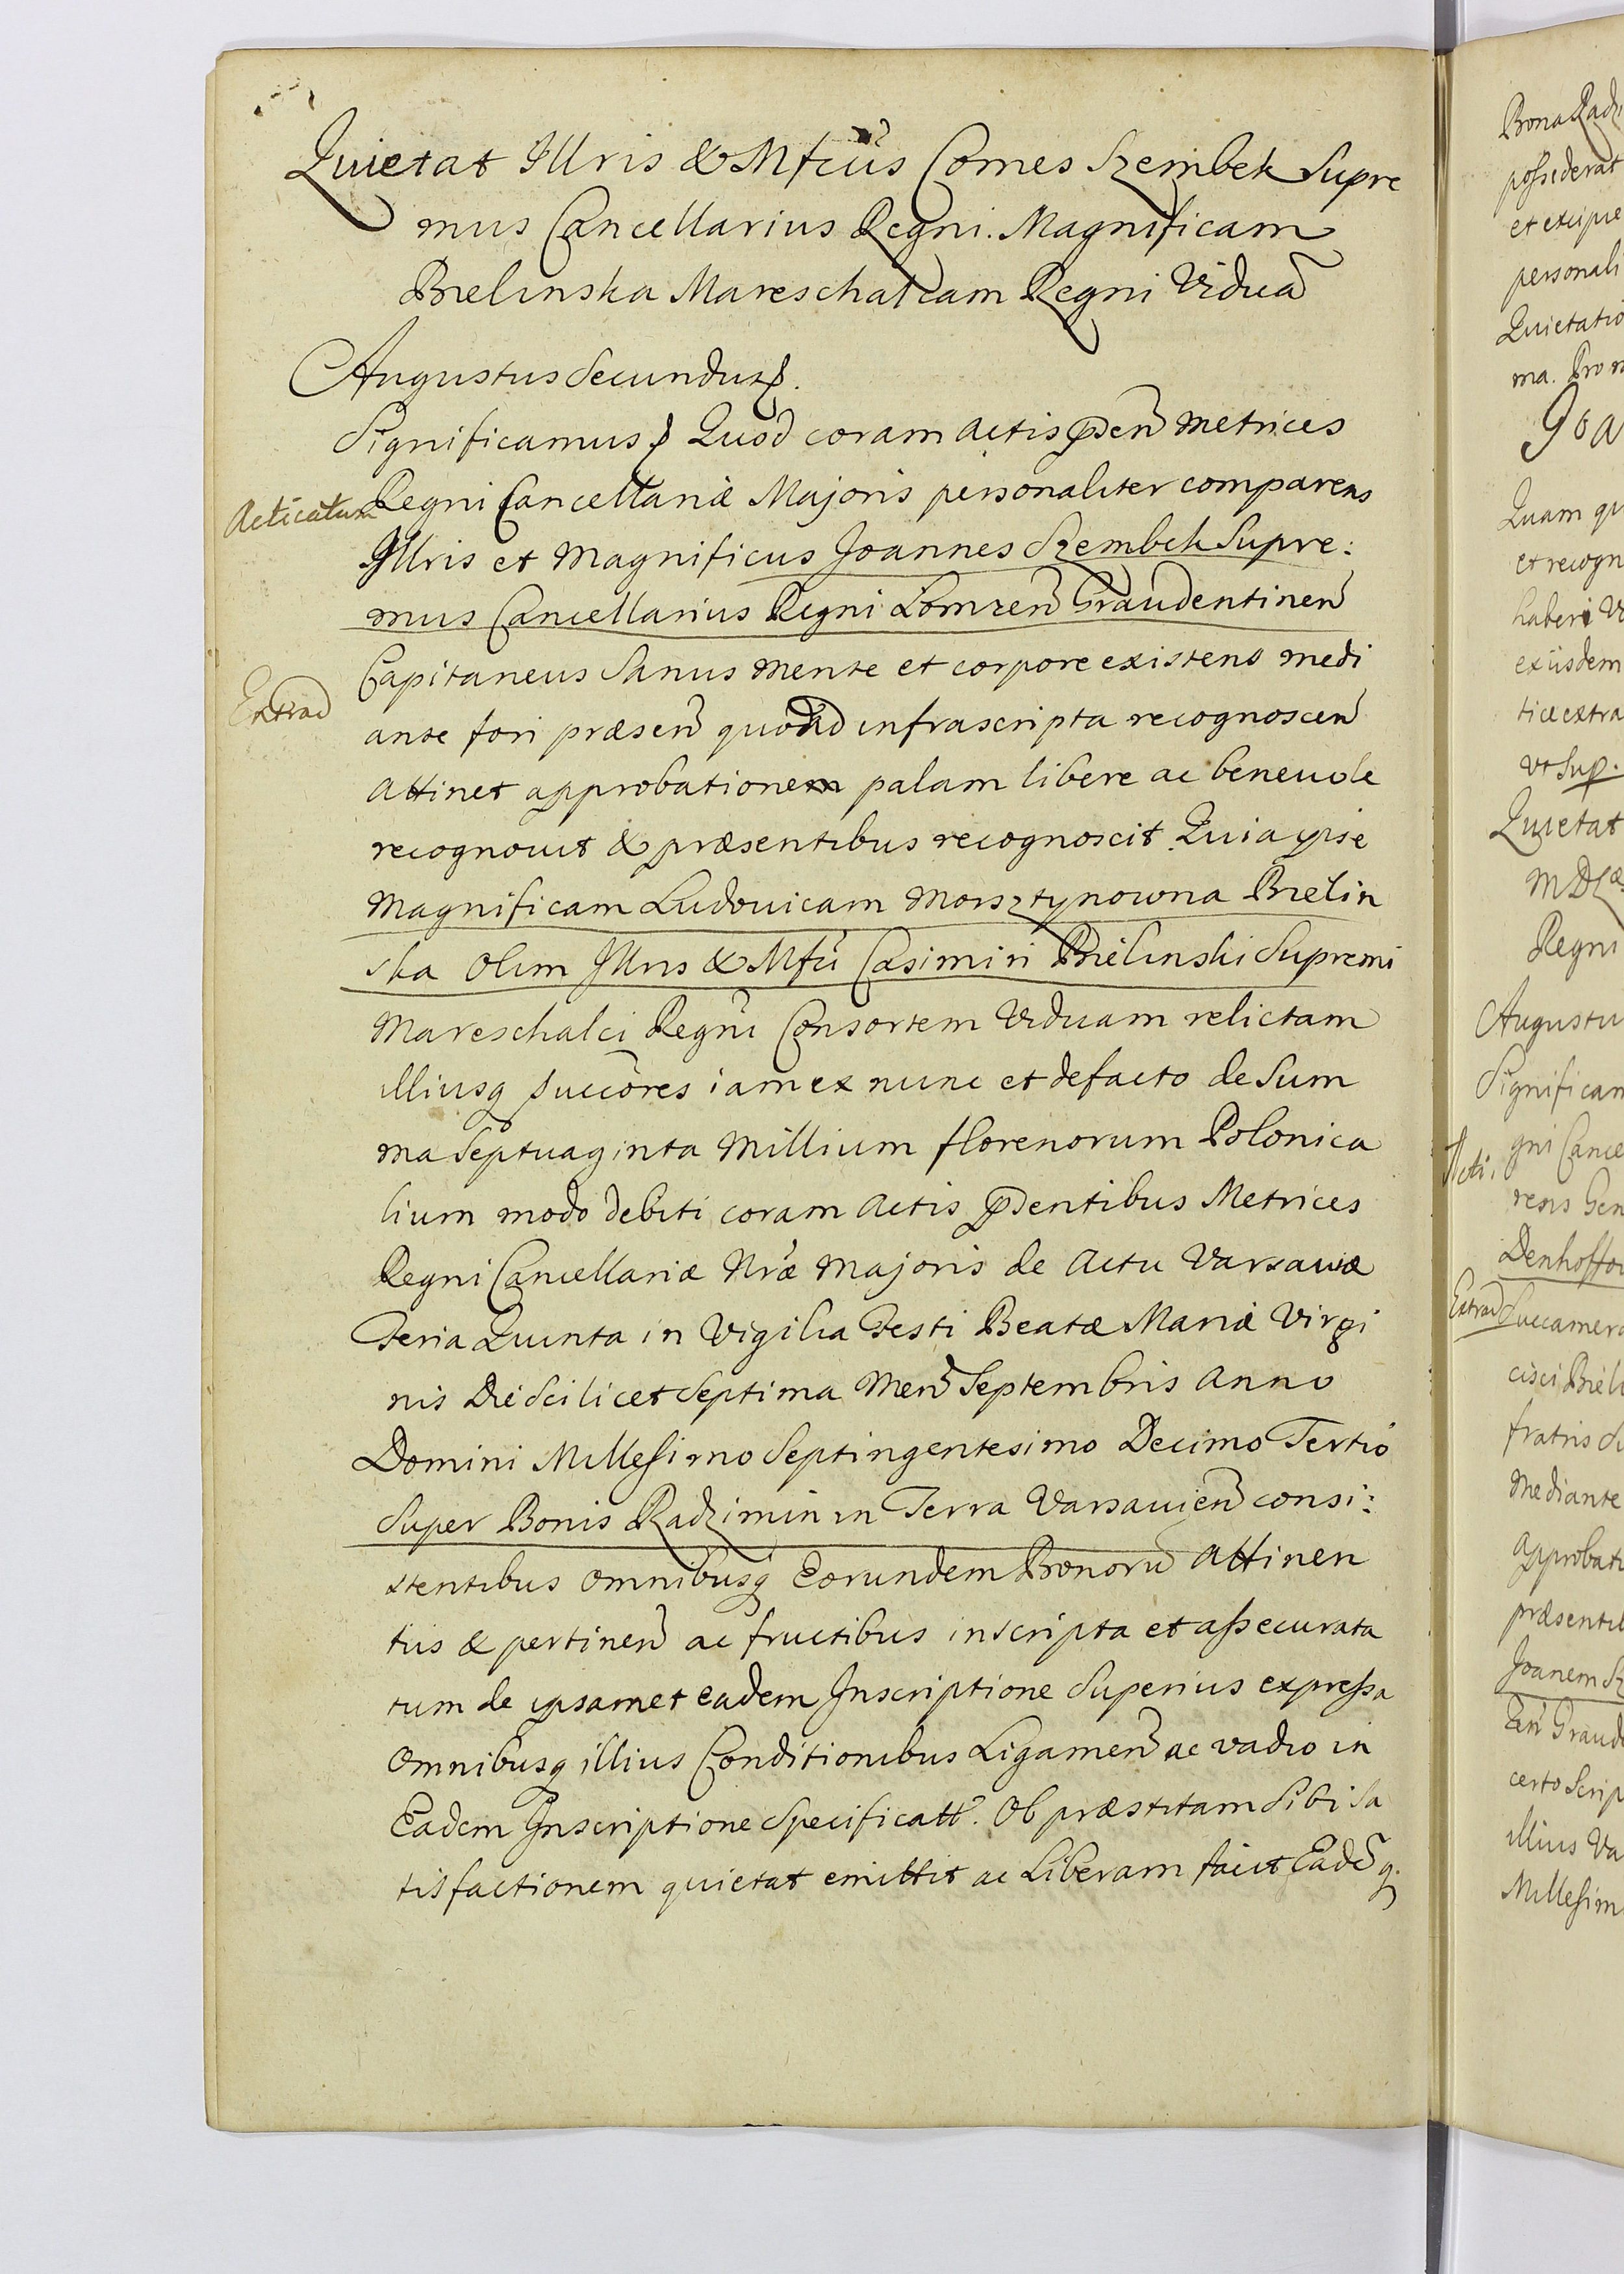 Quietat Illris & Mfcus Comes Szembek Supre
mus Cancellarius Regni. Magnificam
Bielinska Mareschalcam Regni Viduã
Augustus Secundus
Significamus Quod coram Actis pñden Metrices
Acticatum
Regni Cancellariæ Majoris personaliter comparens
Illris et Magnificus Joannes Szembek Supre:
mus Cancellarius Regni Lomzen Graudentinen
Extrad
Capitaneus Sanus mente et corpore existens medi
ante fori præsen quoad infrascripta recognoscen
Attinet approbationem palam libere ac beneuole
recognouit & præsentibus recognoscit. Quia ipse
Magnificam Ludouicam Morsztynowna Bielin
ska Olim Illris & Mfci Casimiri Bielinski Supremi
Mareschalci Regni Consortem Viduam relictam
illiusq succores iam ex nunc et defacto de Sum
ma Septuaginta Millium florenorum Polonica
lium modo debiti coram Actis pñdentibus Metrices
Regni Cancellariæ Nræ Majoris de Actu Varsauiæ
Feria Quinta in Vigilia Festi Beatæ Mariæ Virgi
nis Die Scilicet Septima Men Septembris Anno
Domini Millesimo Septingentesimo Decimo Tertio
Super Bonis Radzimin in Terra Varsauien consi:
stentibus omnibusq Eorundem Bonorũ Attinen
tiis & pertinen ac fructibus inscripta et assecurata
tum de ipsamet eadem Inscriptione Superius expressa
Omnibusq illius Conditionibus Ligamen ac vadio in
Eadem Inscriptione Specificatt. Ob præstitam Sibi Sa
tisfactionem quietat emittit ac Liberam facit Eadẽq.
Bona Radz
possiderat
et excipie
personali
Quietatio
ma. Pro m
Quam qu
et recogn
haberi
ex iisdem
ticæ extra
vt Sup.
Quietat
Regni
Augustu
Significam
Acti.
gni Cance
rens Gen
Denhoffow
Extrad
Succamera
cisci Bieli
fratris
Mediante
Approbati
præsentib
Joanem Sz
Graude
certo Scrip
illius Va
Millesim